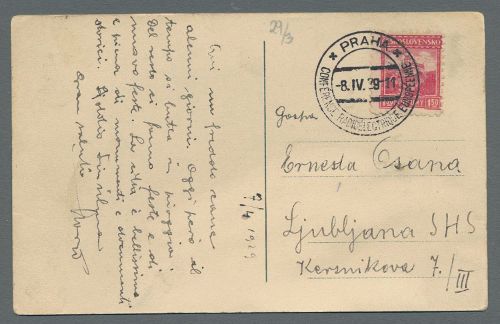 29/3
Qui mi godo come
alcuni giorni. Oggi però il
tempo si butta in pioggia:
Del resto si fanno feste e di
nuovo feste. La città è bellissima
e piena di monumenti e documenti
storici.
Gran saluto
7/4 1929
PRAHA
-8.IV.29-11
CONFERENCE RADIOELECTRIQUE EUROPEENNE
ČESKOSLOVENSKO
150
Gospa
Ernesta Osana
Ljubljana SHS
Kersnikova 7./III